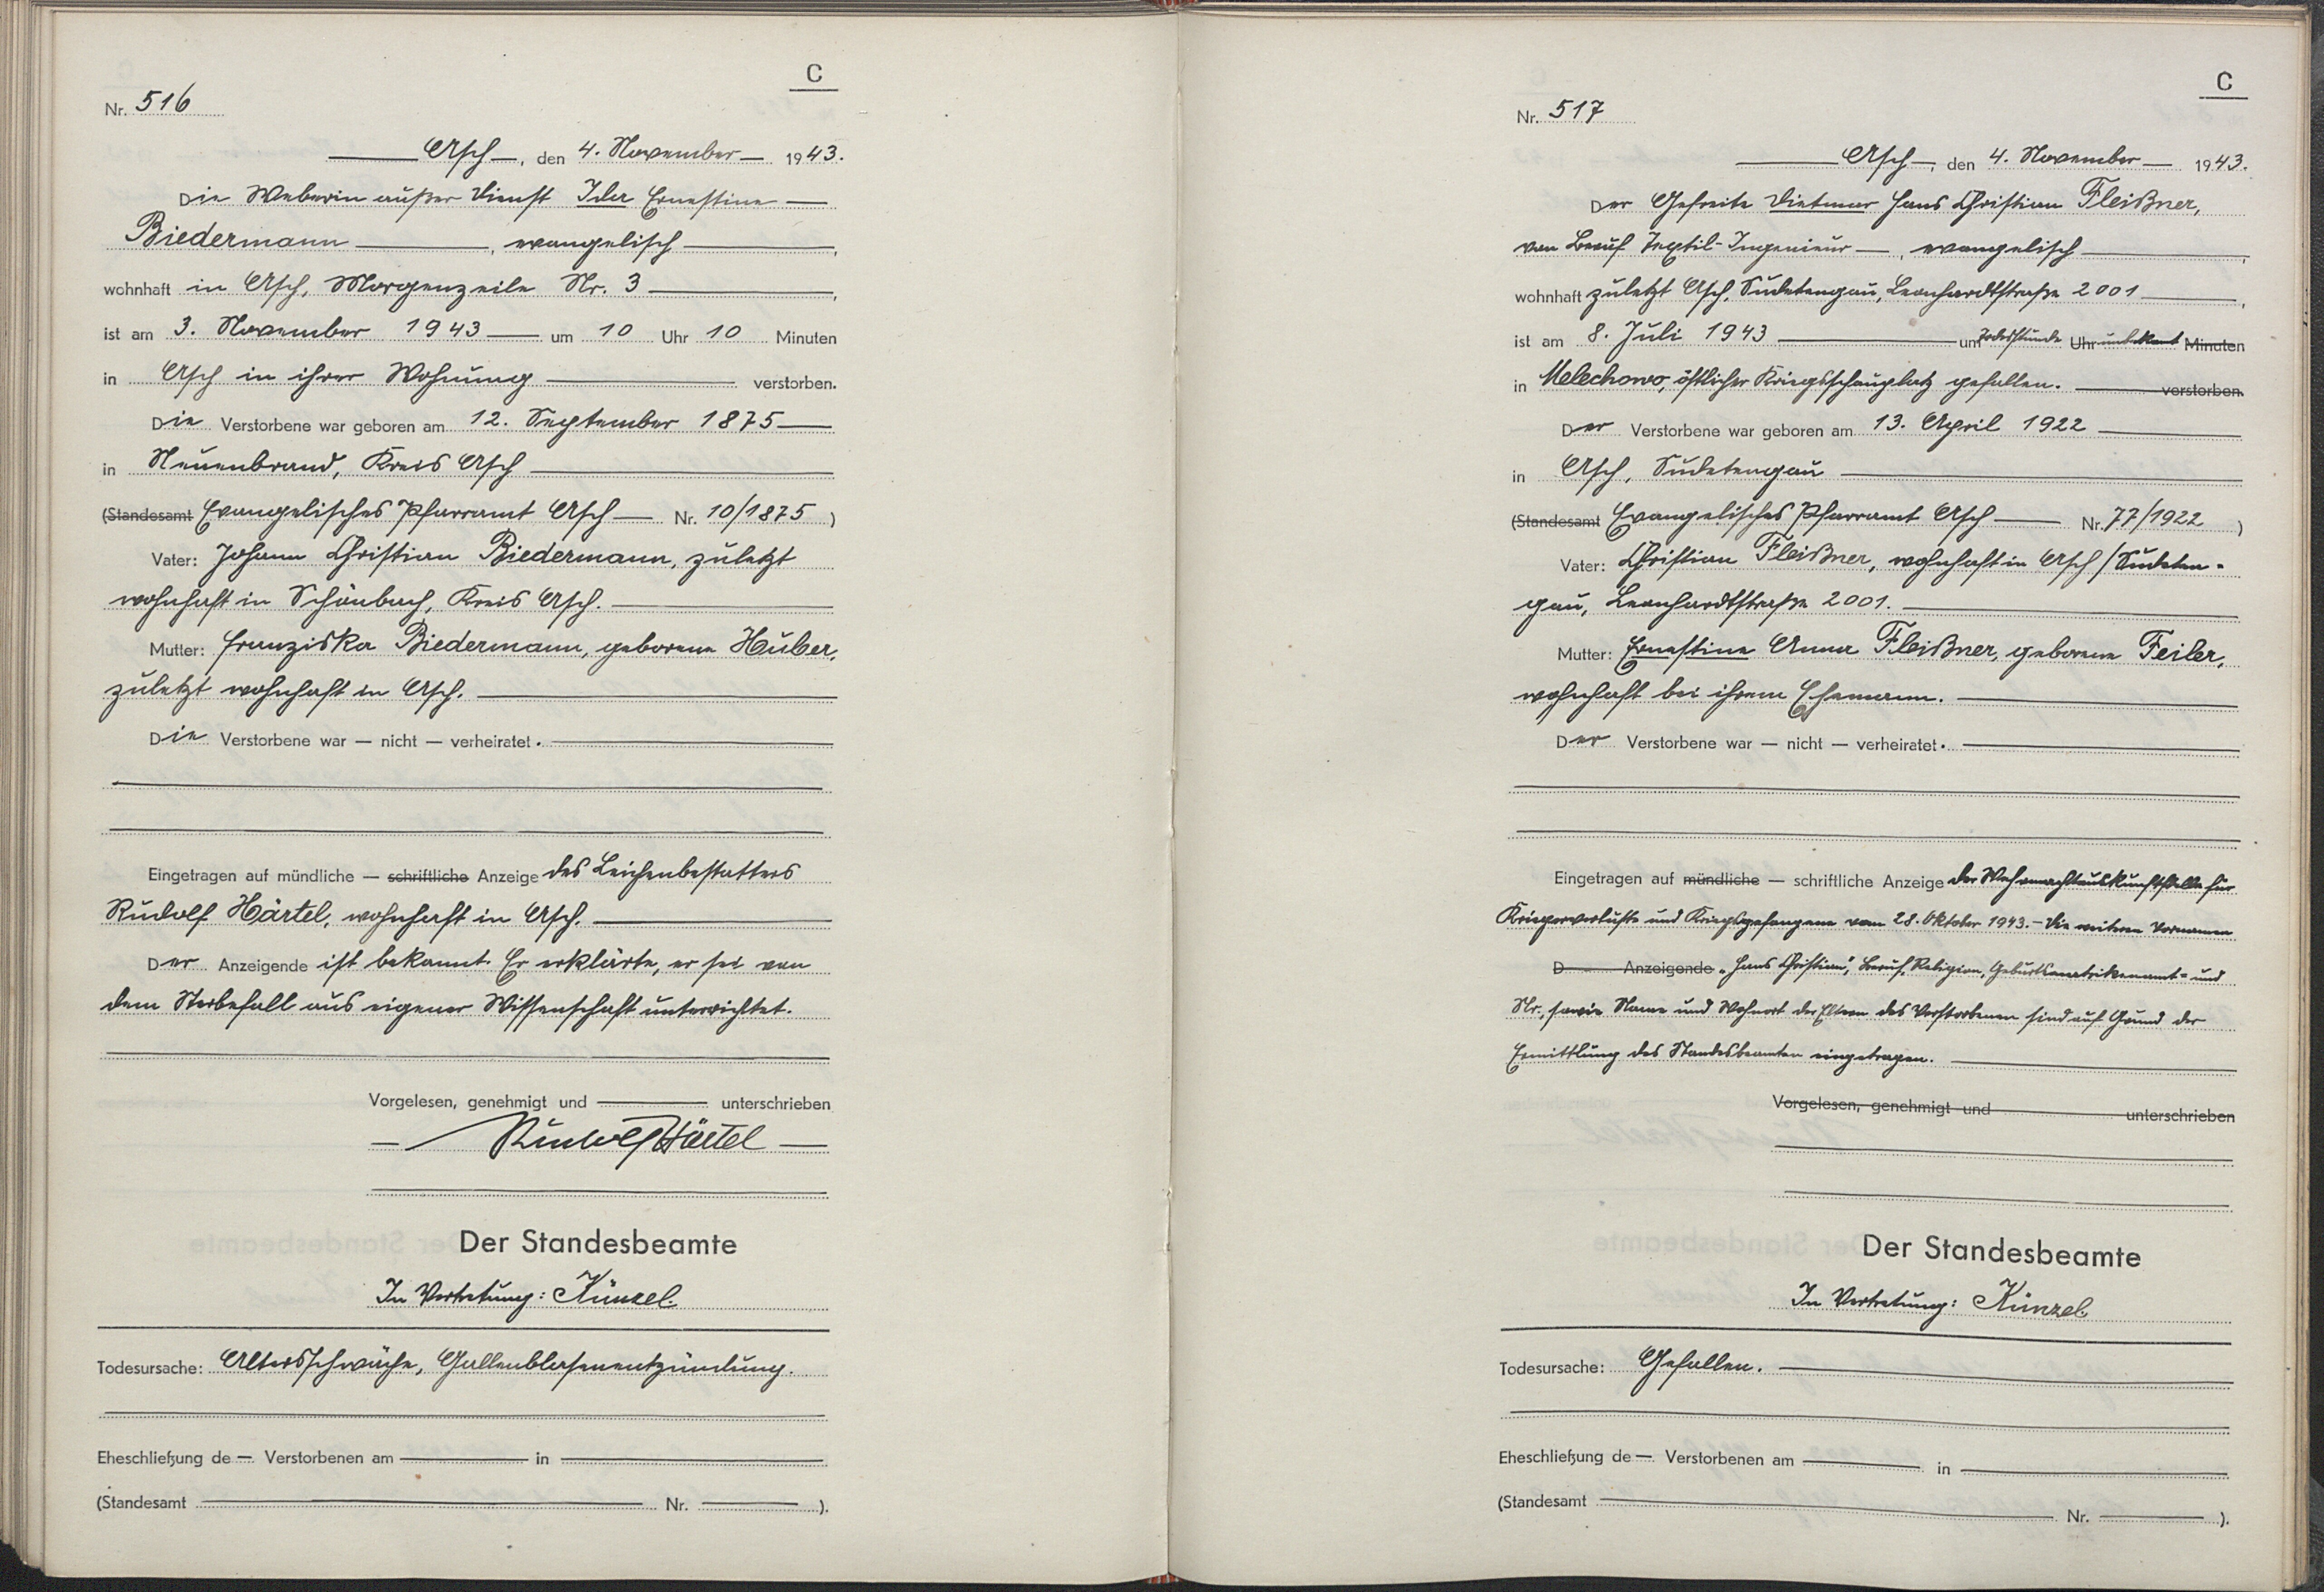 C
Nr. 516
Asch, den 4. November 1943.
Die Weberin außer Dienst Ida Ernestine
Biedermann, evangelisch,
wohnhaft in Asch, Morgenzeile Nr. 3,
ist am 3. November 1943 um 10 Uhr 10 Minuten
in Asch in ihrer Wohnung verstorben.
Die Verstorbene war geboren am 12. September 1875
in Neuenbrand, Kreis Asch
(Standesamt Evangelisches Pfarramt Asch Nr. 10/1875)
Vater: Johann Christian Biedermann, zuletzt
wohnhaft in Schönbach, Kreis Asch.
Mutter: Franziska Biedermann, geborene Huber,
zuletzt wohnhaft in Asch.
Die Verstorbene war — nicht — verheiratet.
Eingetragen auf mündliche — schriftliche Anzeige des Leichenbestatters
Rudolf Härtel, wohnhaft in Asch.
Der Anzeigende ist bekannt. Er erklärte, er sei von
dem Sterbefall aus eigener Wissenschaft unterrichtet.
Vorgelesen, genehmigt und unterschrieben
Rudolf Härtel
Der Standesbeamte
In Vertretung: Künzel.
Todesursache: Altersschwäche, Gallenblasenentzündung.
Eheschließung de — Verstorbenen am in
(Standesamt Nr. ).
C
Nr. 517
Asch, den 4. November 1943.
Der Gefreite Dietmar Hans Christian Fleißner,
von Beruf Textil-Ingenieur, evangelisch,
wohnhaft zuletzt Asch, Sudetengau, Leonhardtstraße 2001,
ist am 8. Juli 1943 um Todesstunde Uhr unbekannt Minuten
in Melechowo, östlicher Kriegsschauplatz gefallen. verstorben.
Der Verstorbene war geboren am 13. April 1922
in Asch, Sudetengau
(Standesamt Evangelisches Pfarramt Asch Nr. 77/1922)
Vater: Christian Fleißner, wohnhaft in Asch/Sudeten-
gau, Leonhardtstraße 2001.
Mutter: Ernestine Anna Fleißner, geborene Feiler,
wohnhaft bei ihrem Ehemann.
Der Verstorbene war — nicht — verheiratet.
Eingetragen auf mündliche — schriftliche Anzeige der Wehrmachtauskunftstelle für
Kriegerverluste und Kriegsgefangene vom 28. Oktober 1943. – Die weiteren Vornamen
D Anzeigende „Hans Christian", Beruf, Religion, Geburtsmatrikenamt- und
Nr., sowie Name und Wohnort der Eltern des Verstorbenen sind auf Grund der
Ermittlung des Standesbeamten eingetragen.
Vorgelesen, genehmigt und unterschrieben
Der Standesbeamte
In Vertretung: Künzel.
Todesursache: Gefallen.
Eheschließung de — Verstorbenen am in
(Standesamt Nr. ).